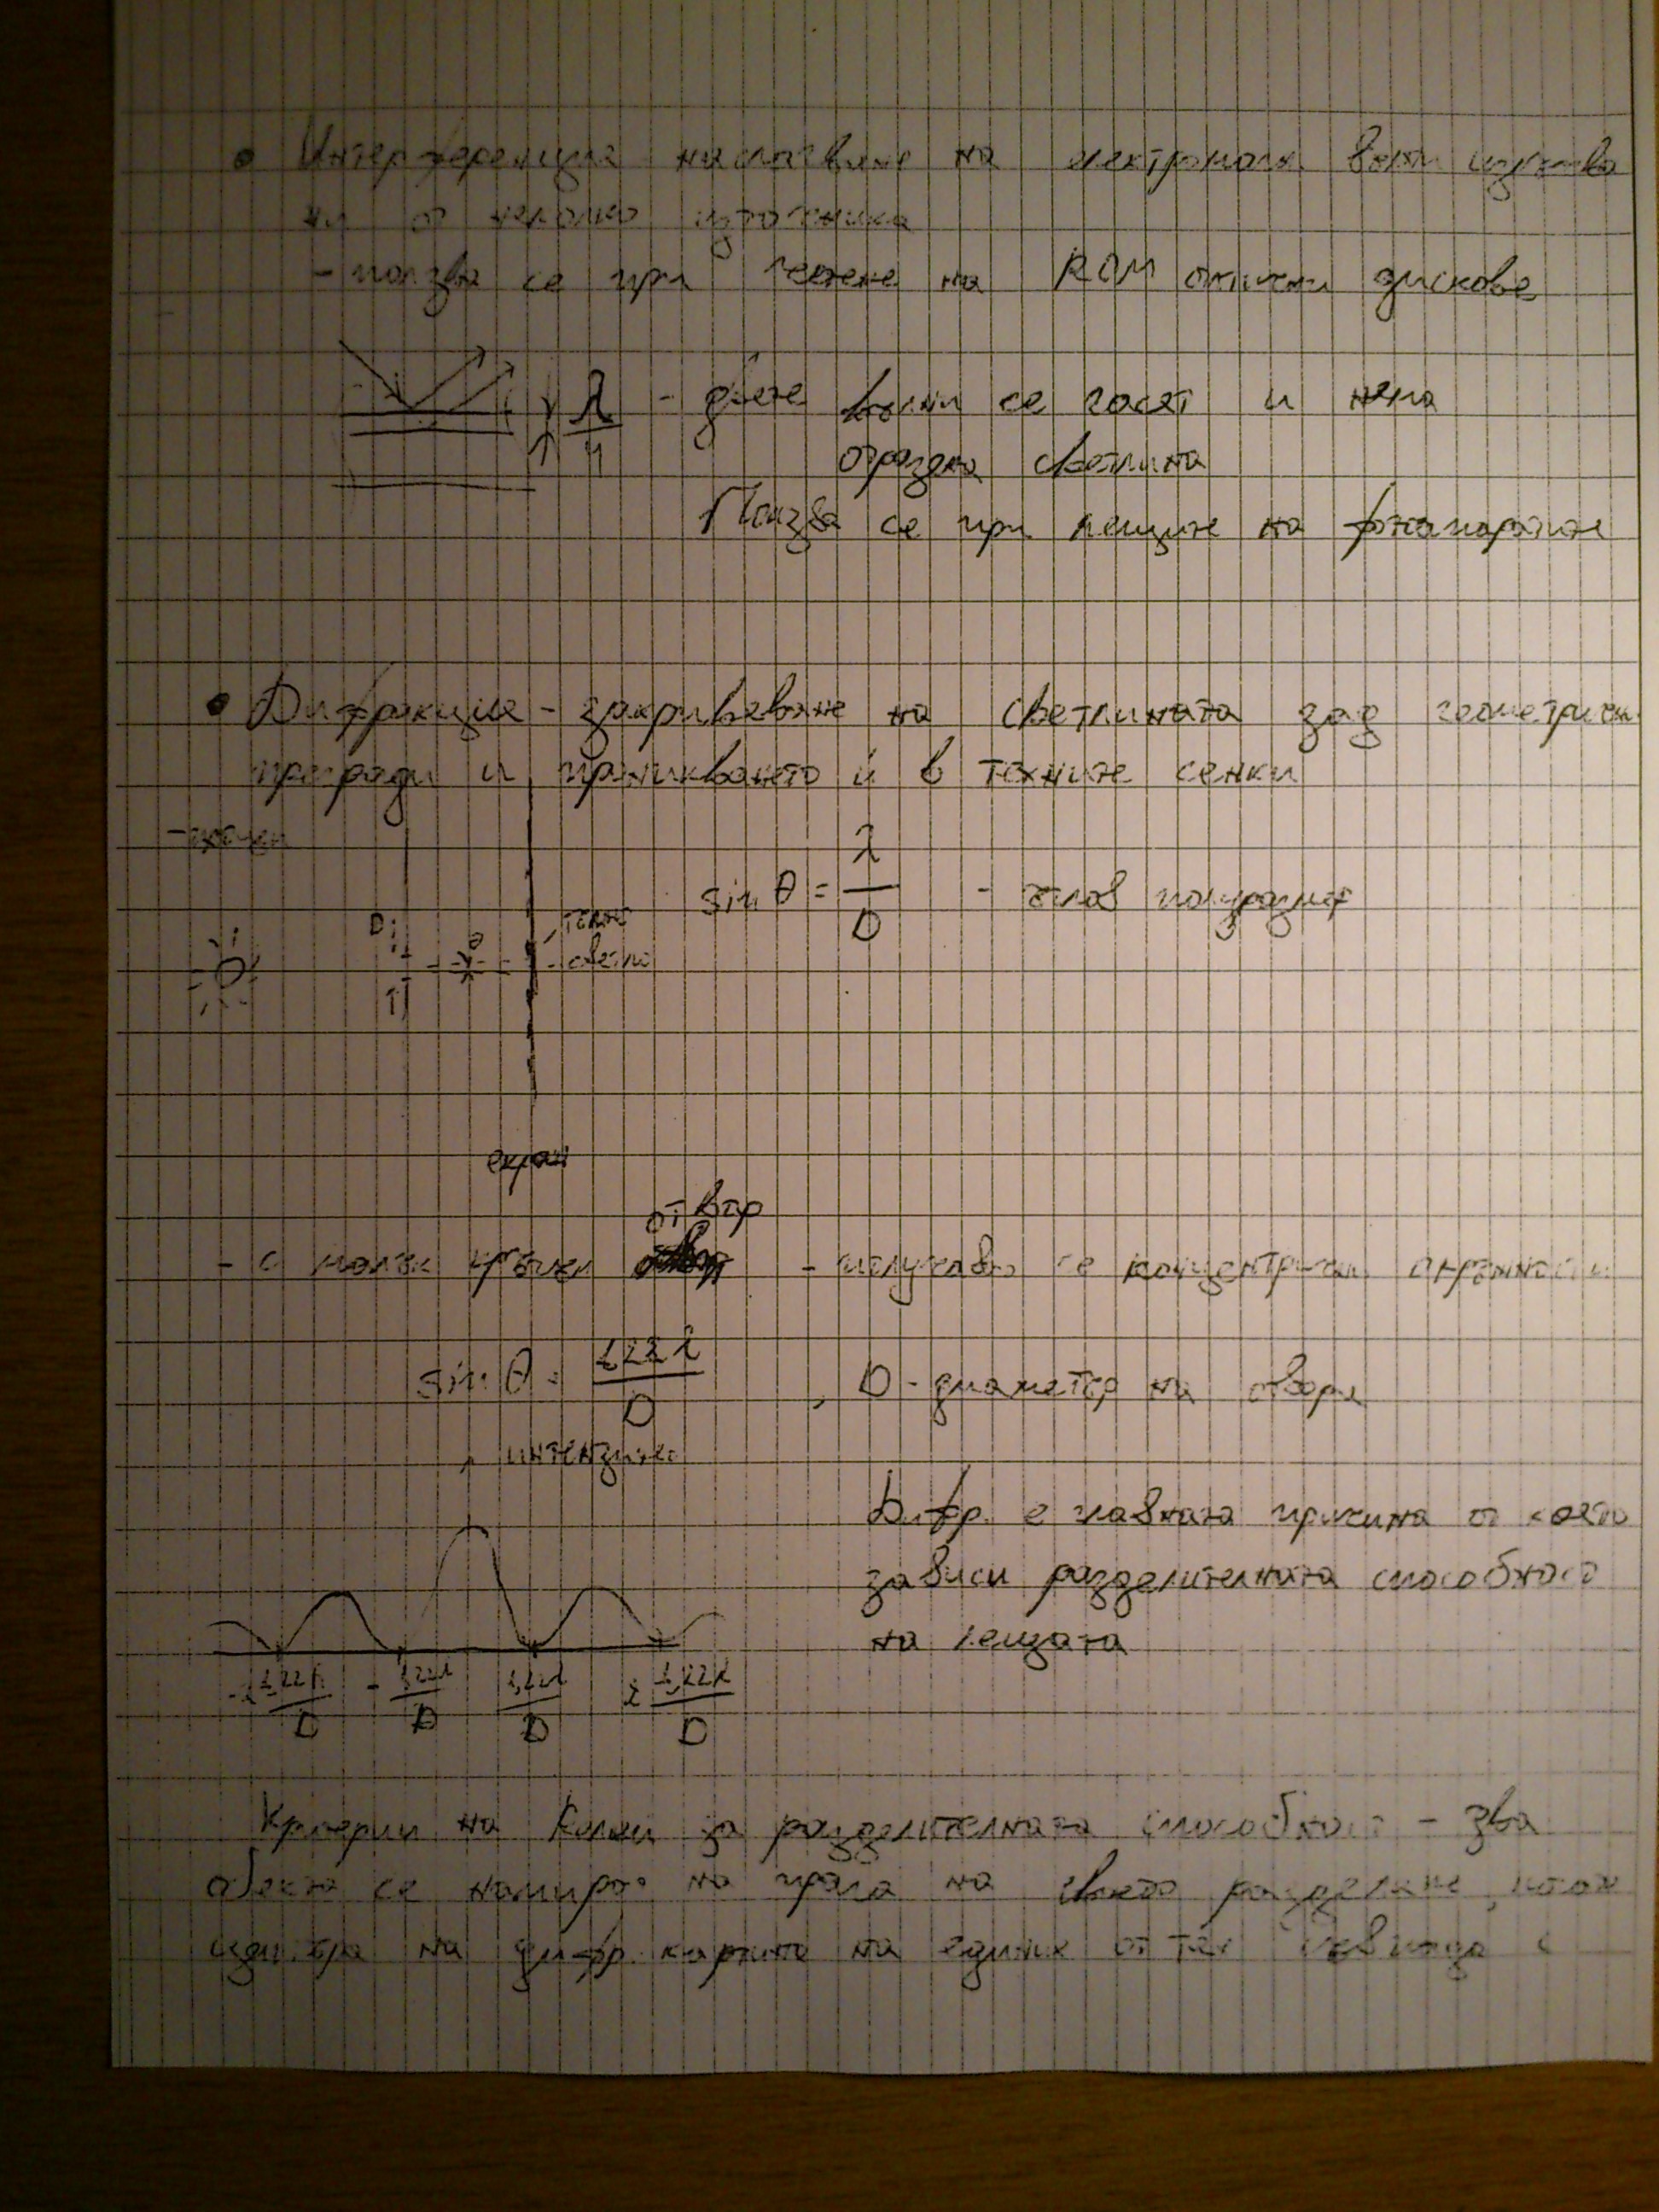 • Интерференция наслагване на електромагн. вълни излъчва
ни от няколко източника
- ползва се при четене на ROM оптични дискове
λ/4 - двете вълни се гасят и няма
отразена светлина
Ползва се при лещите на фотоапаратите
• Дифракция - закривяване на светлината зад геометричн.
прегради и проникването ѝ в техните сенки
sin θ = λ/D - ъглов полуразмер
D θ тъмно
светло
екран
отвър
- с малък кръгъл - получават се концентричн. окръжности
sin θ = 1,22λ/D , D - диаметър на отвора
интензитет
Дифр. е главната причина от която
зависи разделителната способност
на лещата
-2 1,22λ/D - 1,22λ/D 1,22λ/D 2 1,22λ/D
Критерии на за разделителната способност - два
обекта се намират на прага на своето разделяне, когато
центъра на дифр. картина на единия от тях съвпада с